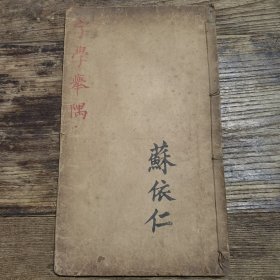 字學舉隅
蘇依仁